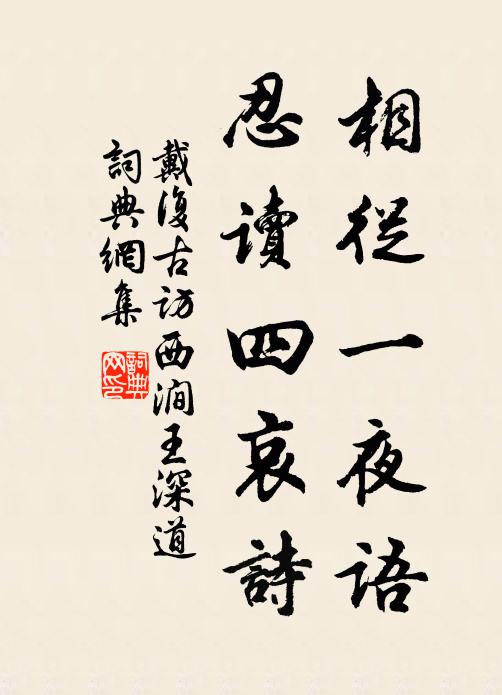 相從一夜語
忍讀四哀詩
戴復古訪西澗王深道
詞典網集
詞典
网印